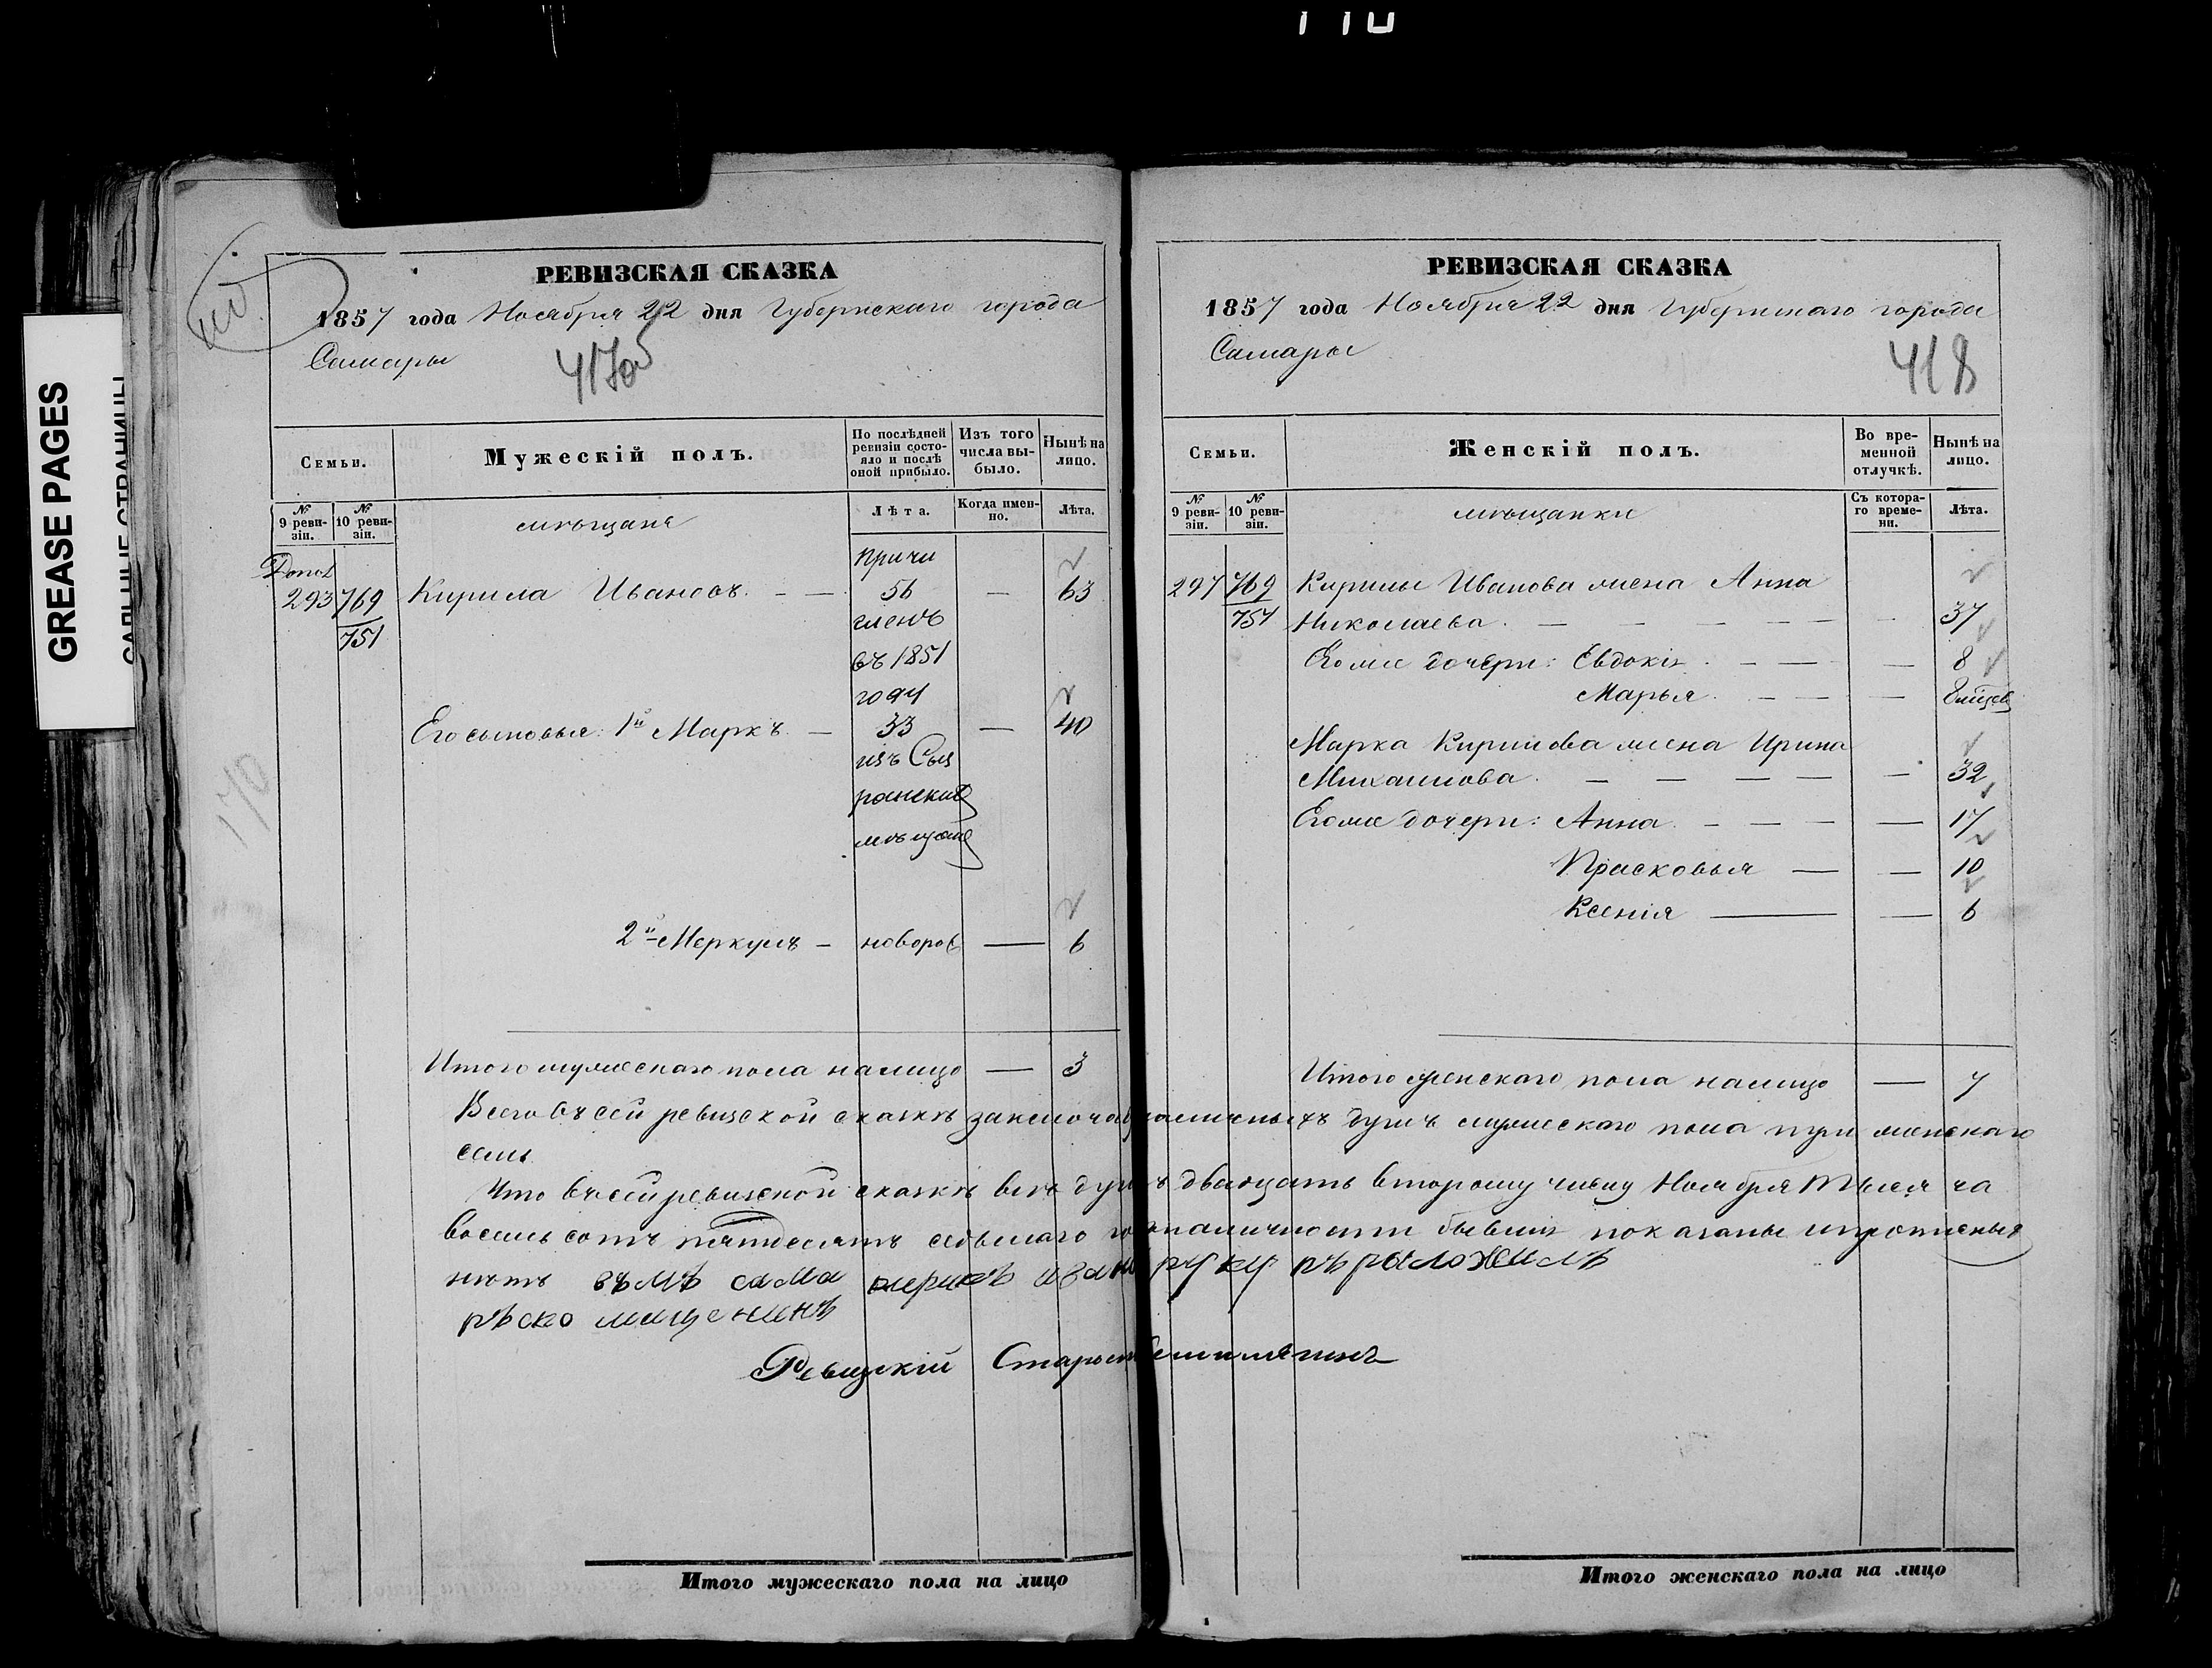 110
GREASE PAGES
САЛЬНЫЕ СТРАНИЦЫ
170
РЕВИЗСКАЯ СКАЗКА
1857 года Ноября 22 дня Губернскаго города
Самары
417об
Семьи.
Мужескій полъ.
По послѣдней ревизіи состояло и послѣ оной прибыло.
Изъ того числа выбыло.
Нынѣ на лицо.
№ 9 ревизіи.
№ 10 ревизіи.
мѣщане
Лѣта.
Когда именно.
Лѣта.
Допол
293 769/751 Кирила Ивановъ — 56 — 63
причи
сленъ
въ 1851
году
Его сыновья: 1й Маркъ — 33 — 40
изъ Сыз
ранских
мѣщанъ
2й Меркулъ — новорож — 6
Итого мужескаго пола налицо — 3
РЕВИЗСКАЯ СКАЗКА
1857 года Ноября 22 дня Губернскаго города
Самары
418
Семьи.
Женскій полъ.
Во временной отлучкѣ.
Нынѣ на лицо.
№ 9 ревизіи.
№ 10 ревизіи.
мѣщанки
Съ котораго времени.
Лѣта.
297 769/751 Кирилы Иванова жена Анна
Николаева — 37
Его же дочери: Евдокія — 8
Марья — 8 мѣсяц
Марка Кирилова жена Ирина
Михайлова — 32
Его же дочери: Анна — 17
Прасковья — 10
Ксенія — 6
Итого женскаго пола налицо — 7
Всего въ сей ревизской сказкѣ наличныхъ душъ мужескаго пола три женскаго
семь
Что въ сей ревизской сказкѣ всѣ душъ двадцать второму числу Ноября тысяча
восемь сотъ пятдесятъ седьмаго по наличности бывшія показаны и прописныхъ
нѣтъ въ мѣ сама руку пърыложилъ
рѣско мищенинъ
Ревизскій Староста
Итого мужескаго пола на лицо
Итого женскаго пола на лицо